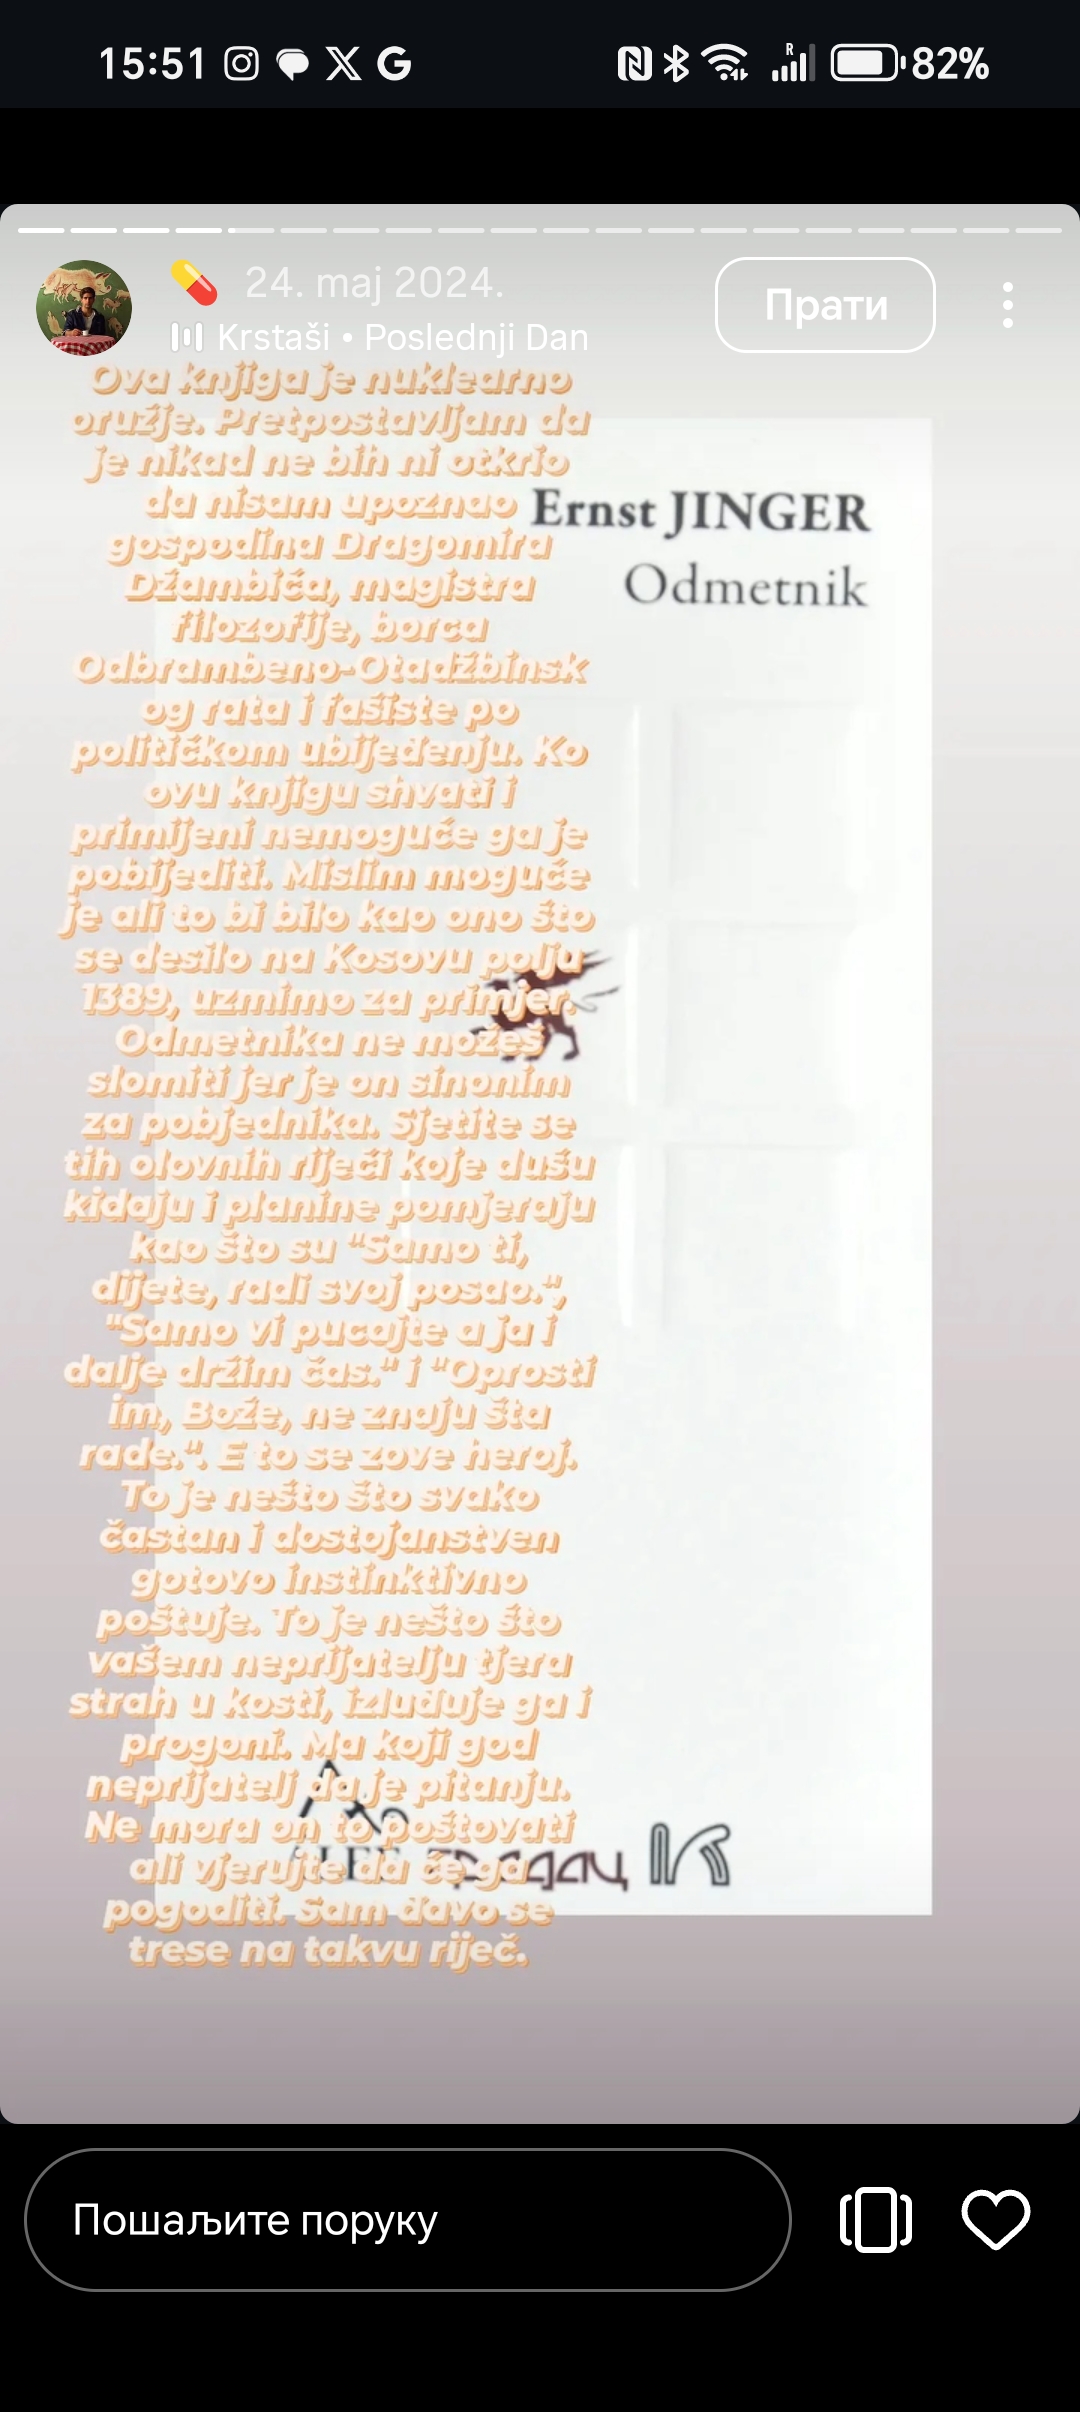 15:51
82%
24. maj 2024.
Krstaši • Poslednji Dan
Прати
Ova knjiga je nuklearno
oružje. Pretpostavljam da
je nikad ne bih ni otkrio
da nisam upoznao
gospodina Dragomira
Džambića, magistra
filozofije, borca
Odbrambeno-Otadžbinsk
og rata i fašiste po
političkom ubijeđenju. Ko
ovu knjigu shvati i
primijeni nemoguće ga je
pobijediti. Mislim moguće
je ali to bi bilo kao ono što
se desilo na Kosovu polju
1389, uzmimo za primjer.
Odmetnika ne možeš
slomiti jer je on sinonim
za pobjednika. Sjetite se
tih olovnih riječi koje dušu
kidaju i planine pomjeraju
kao što su "Samo ti,
dijete, radi svoj posao.",
"Samo vi pucajte a ja i
dalje držim čas." i "Oprosti
im, Bože, ne znaju šta
rade.". E to se zove heroj.
To je nešto što svako
častan i dostojanstven
gotovo instinktivno
poštuje. To je nešto što
vašem neprijatelju tjera
strah u kosti, izluđuje ga i
progoni. Ma koji god
neprijatelj da je pitanju.
Ne mora on to poštovati
ali vjerujte da će ga
pogoditi. Sam đavo se
trese na takvu riječ.
Ernst JINGER
Odmetnik
Пошаљите поруку